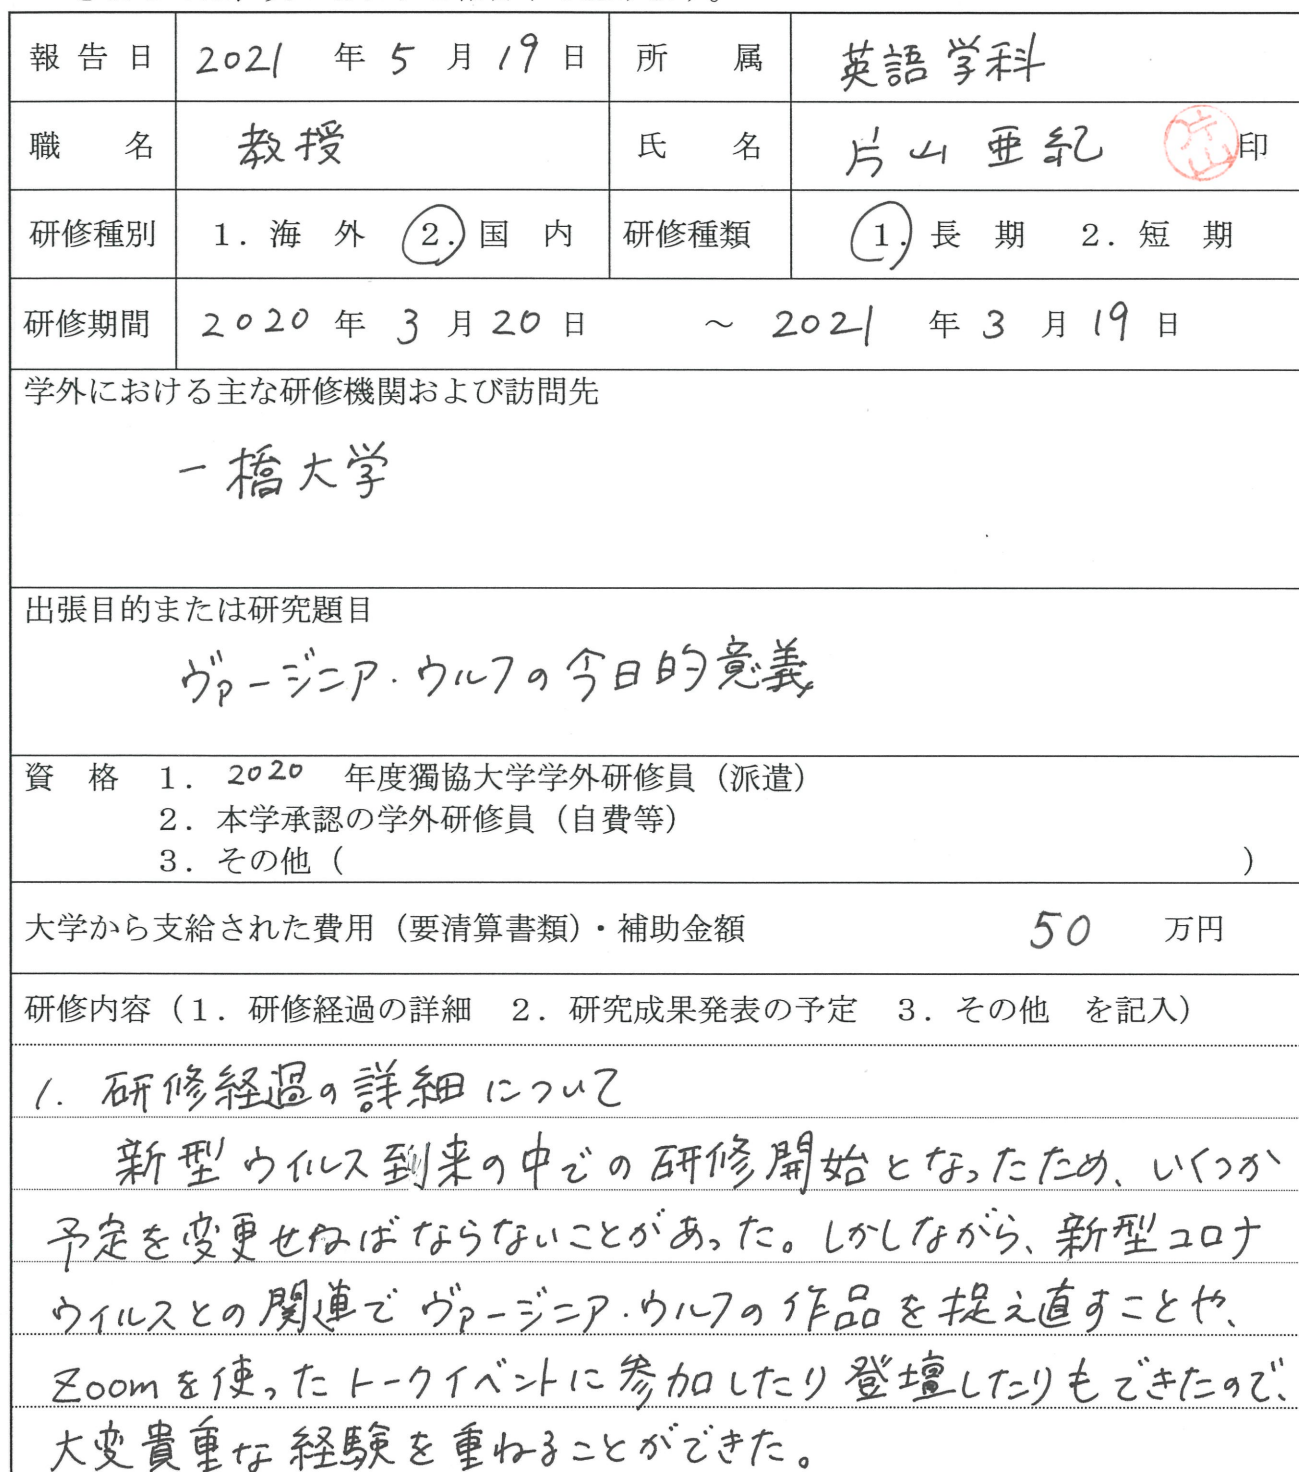 報告日 2021 年 5 月 19 日 所属 英語学科
職名 教授 氏名 片山亜紀 片山 印
研修種別 1．海外 2．国内 研修種類 1．長期 2．短期
研修期間 2020 年 3 月 20 日 ～ 2021 年 3 月 19 日
学外における主な研修機関および訪問先
一橋大学
出張目的または研究題目
ヴァージニア・ウルフの今日的意義
資格 1．2020 年度獨協大学学外研修員（派遣）
2．本学承認の学外研修員（自費等）
3．その他（ ）
大学から支給された費用（要清算書類）・補助金額 50 万円
研修内容（1．研修経過の詳細 2．研究成果発表の予定 3．その他 を記入）
1. 研修経過の詳細について
新型ウイルス到来の中での研修開始となったため、いくつか
予定を変更せねばならないことがあった。しかしながら、新型コロナ
ウィルスとの関連でヴァージニア・ウルフの作品を捉え直すことや、
Zoomを使ったトークイベントに参加したり登壇したりもできたので、
大変貴重な経験を重ねることができた。